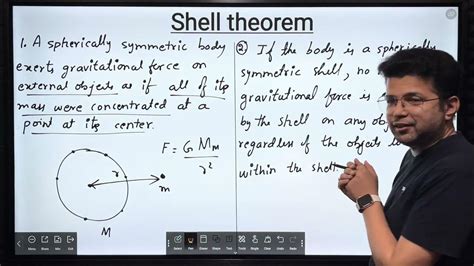 Shell theorem
1. A spherically symmetric body
exerts gravitational force on
external objects as if all of its
mass were concentrated at a
point at its center.
F = G M m
r²
r
m
M
② If the body is a spherically
symmetric shell, no
gravitational force is
by the shell on any
regardless of the objects
within the shell